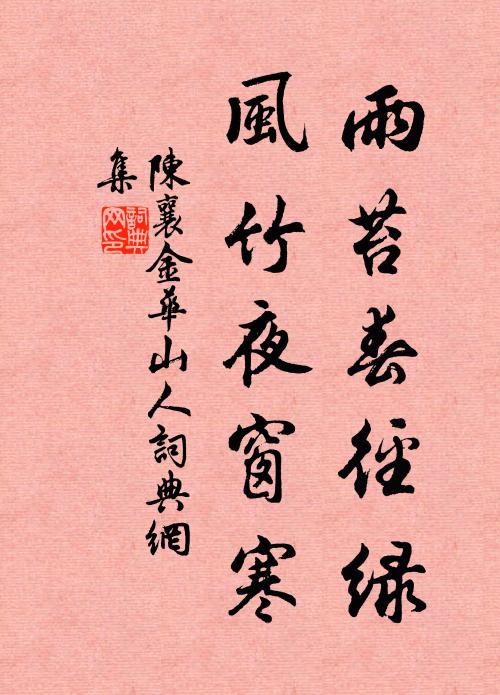 雨苔春徑綠
風竹夜窗寒
陳襄金華山人詞典網
集
詞典網印